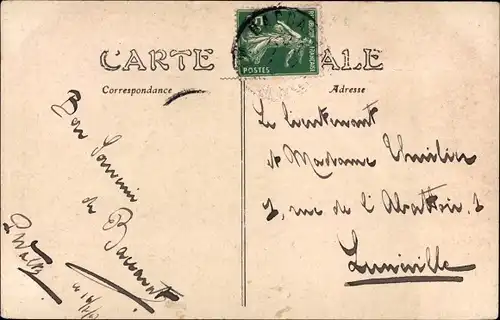 CARTE ALE
Correspondance
Adresse
POSTES
Bon Souvenir
de Baccarat
Le Lieutenant
& Madame
rue de l'Abattoir
Lunéville